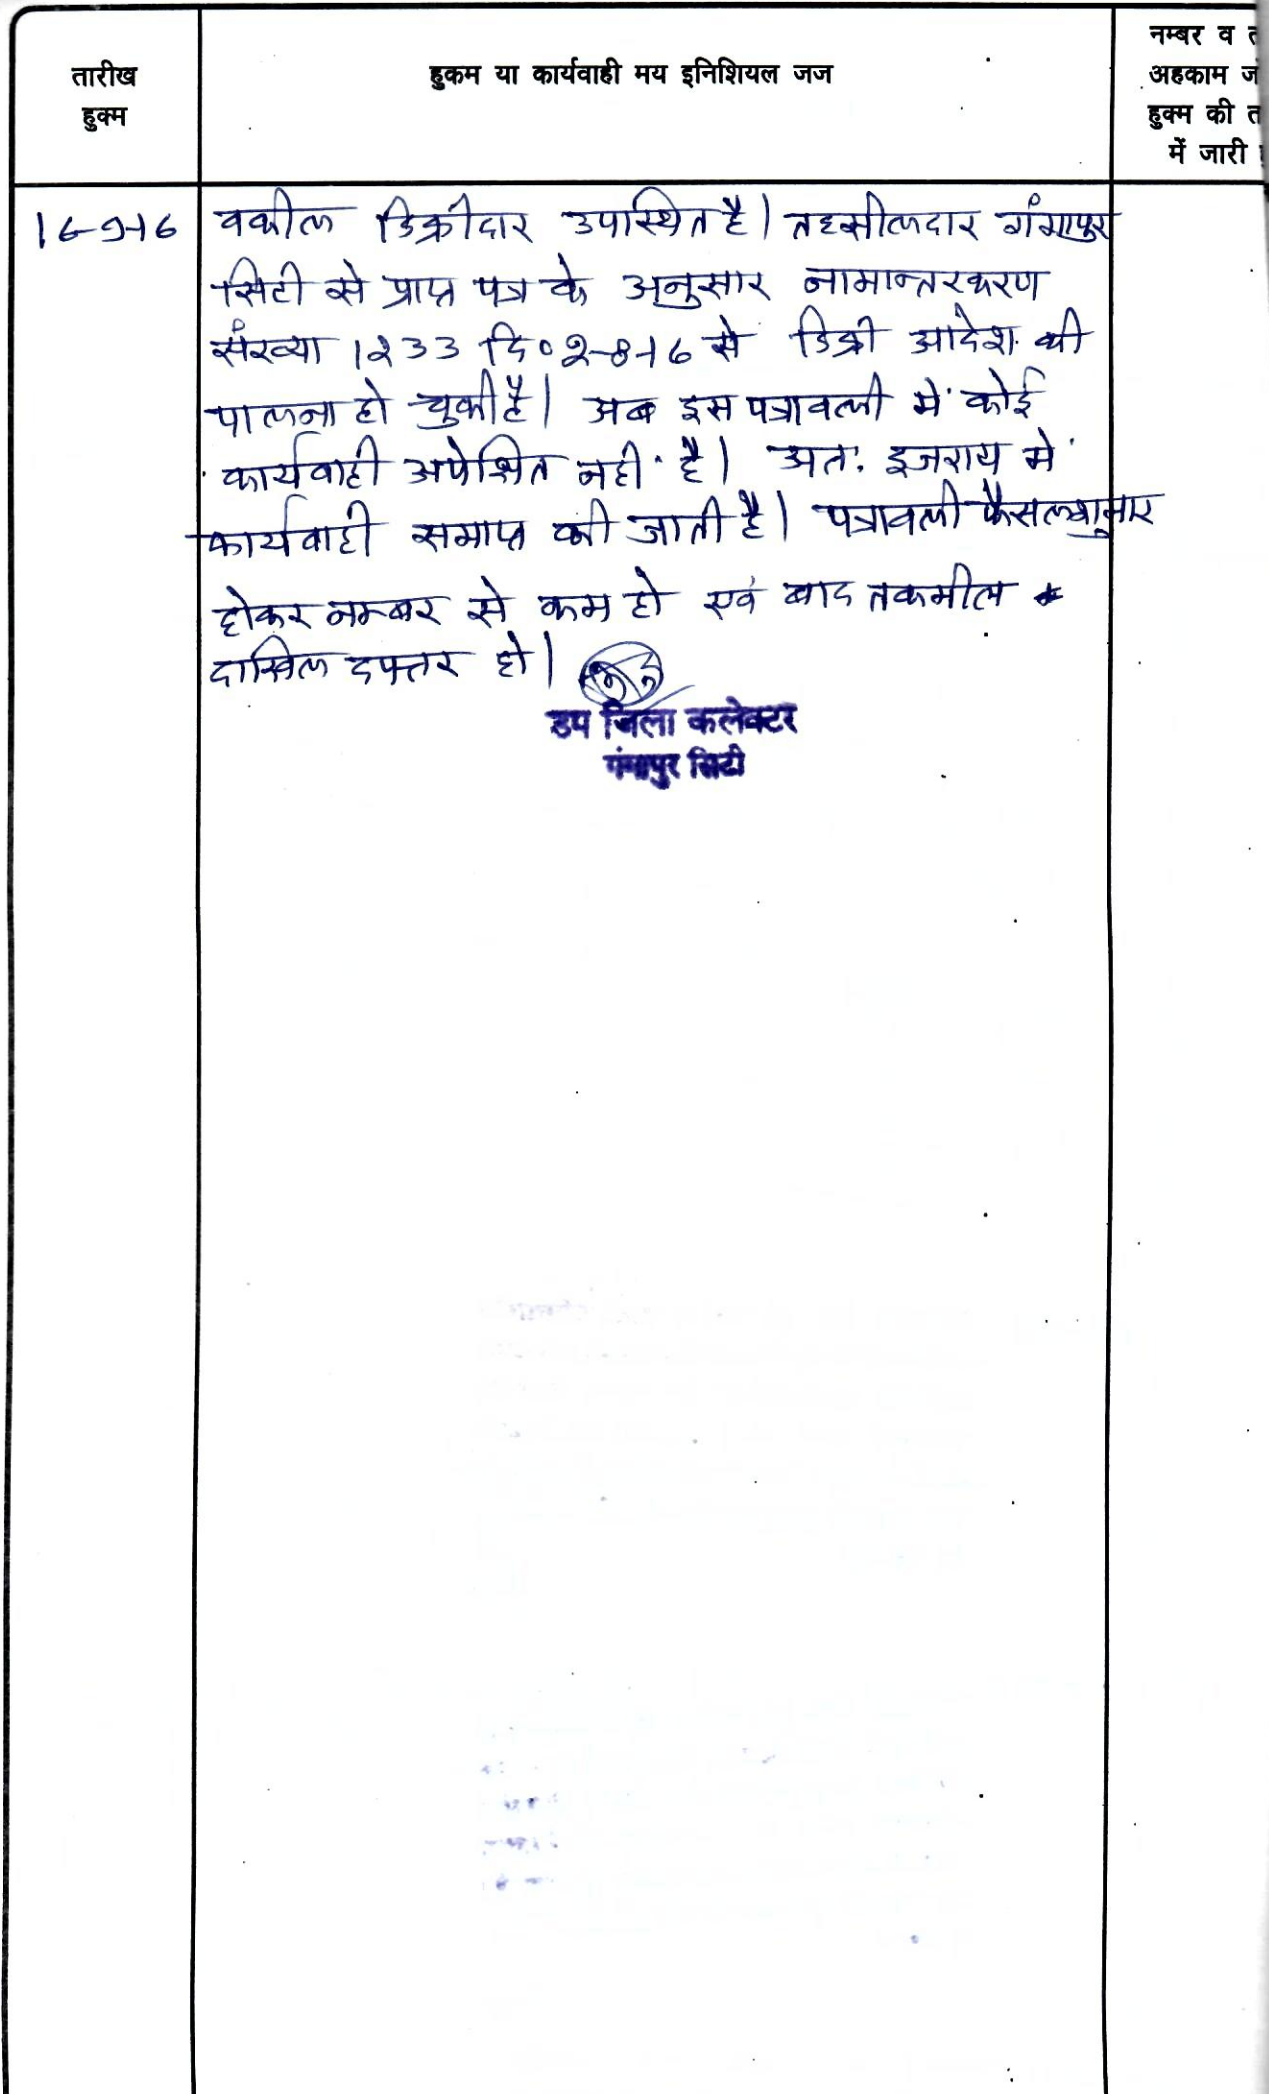 तारीख
हुक्म
हुकम या कार्यवाही मय इनिशियल जज
नम्बर व
अहकाम
हुक्म की
में जारी
16-9-16
वकील डिक्रीदार उपास्थित है। तहसीलदार गंगापुर
सिटी से प्राप्त पत्र के अनुसार नामान्तरकरण
संख्या 1233 दि० 2-8-16 से डिक्री आदेश की
पालना हो चुकी है। अब इस पत्रावली में कोई
कार्यवाही अपेक्षित नहीं है। अतः इजराय में
कार्यवाही समाप्त की जाती है। पत्रावली
होकर नम्बर से कम हो एवं बाद तकमील
दाखिल दफ्तर हो।
उप जिला कलेक्टर
गंगापुर सिटी